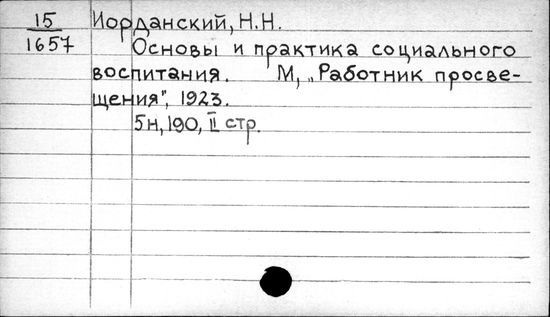 15 Иорданский, Н.Н.
1657 Основы и практика социального
воспитания. М, „Работник просве-
щения", 1923.
5н, 190, II стр.